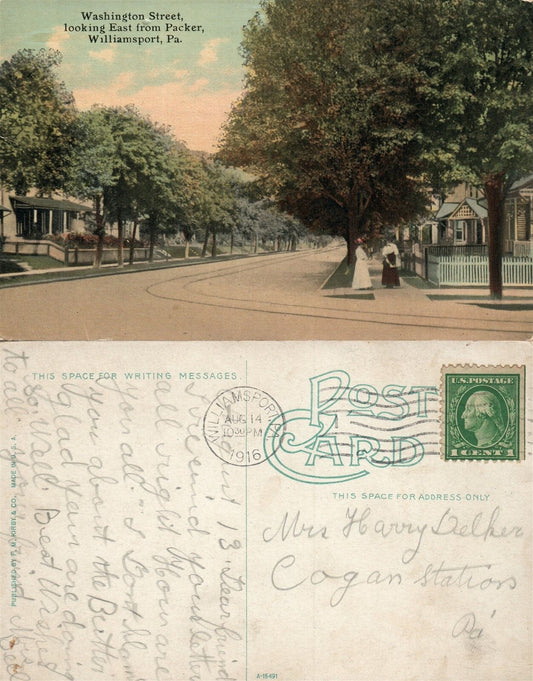 Washington Street,
looking East from Packer,
Williamsport, Pa.
THIS SPACE FOR WRITING MESSAGES.
POST
CARD
THIS SPACE FOR ADDRESS ONLY
WILLIAMSPORT, PA
AUG 14
1916
U.S. POSTAGE
1 CENT 1
Mrs Harry Delker
Cogan Station
Pa
13 Dear friend
I received your letter
all right. How are
you all. I dont blame
you about the Butter
glad your are doing
so well. Best Wishes
to all.
PUBLISHED BY
& CO.
MADE IN U. S. A.
A-15491